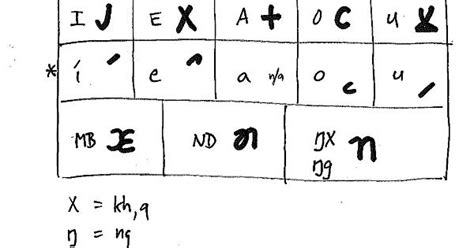 I J E X A + O C U
* i e a n/a o u
MB ND ŊX
Ŋg
X = kh, q
Ŋ = ng